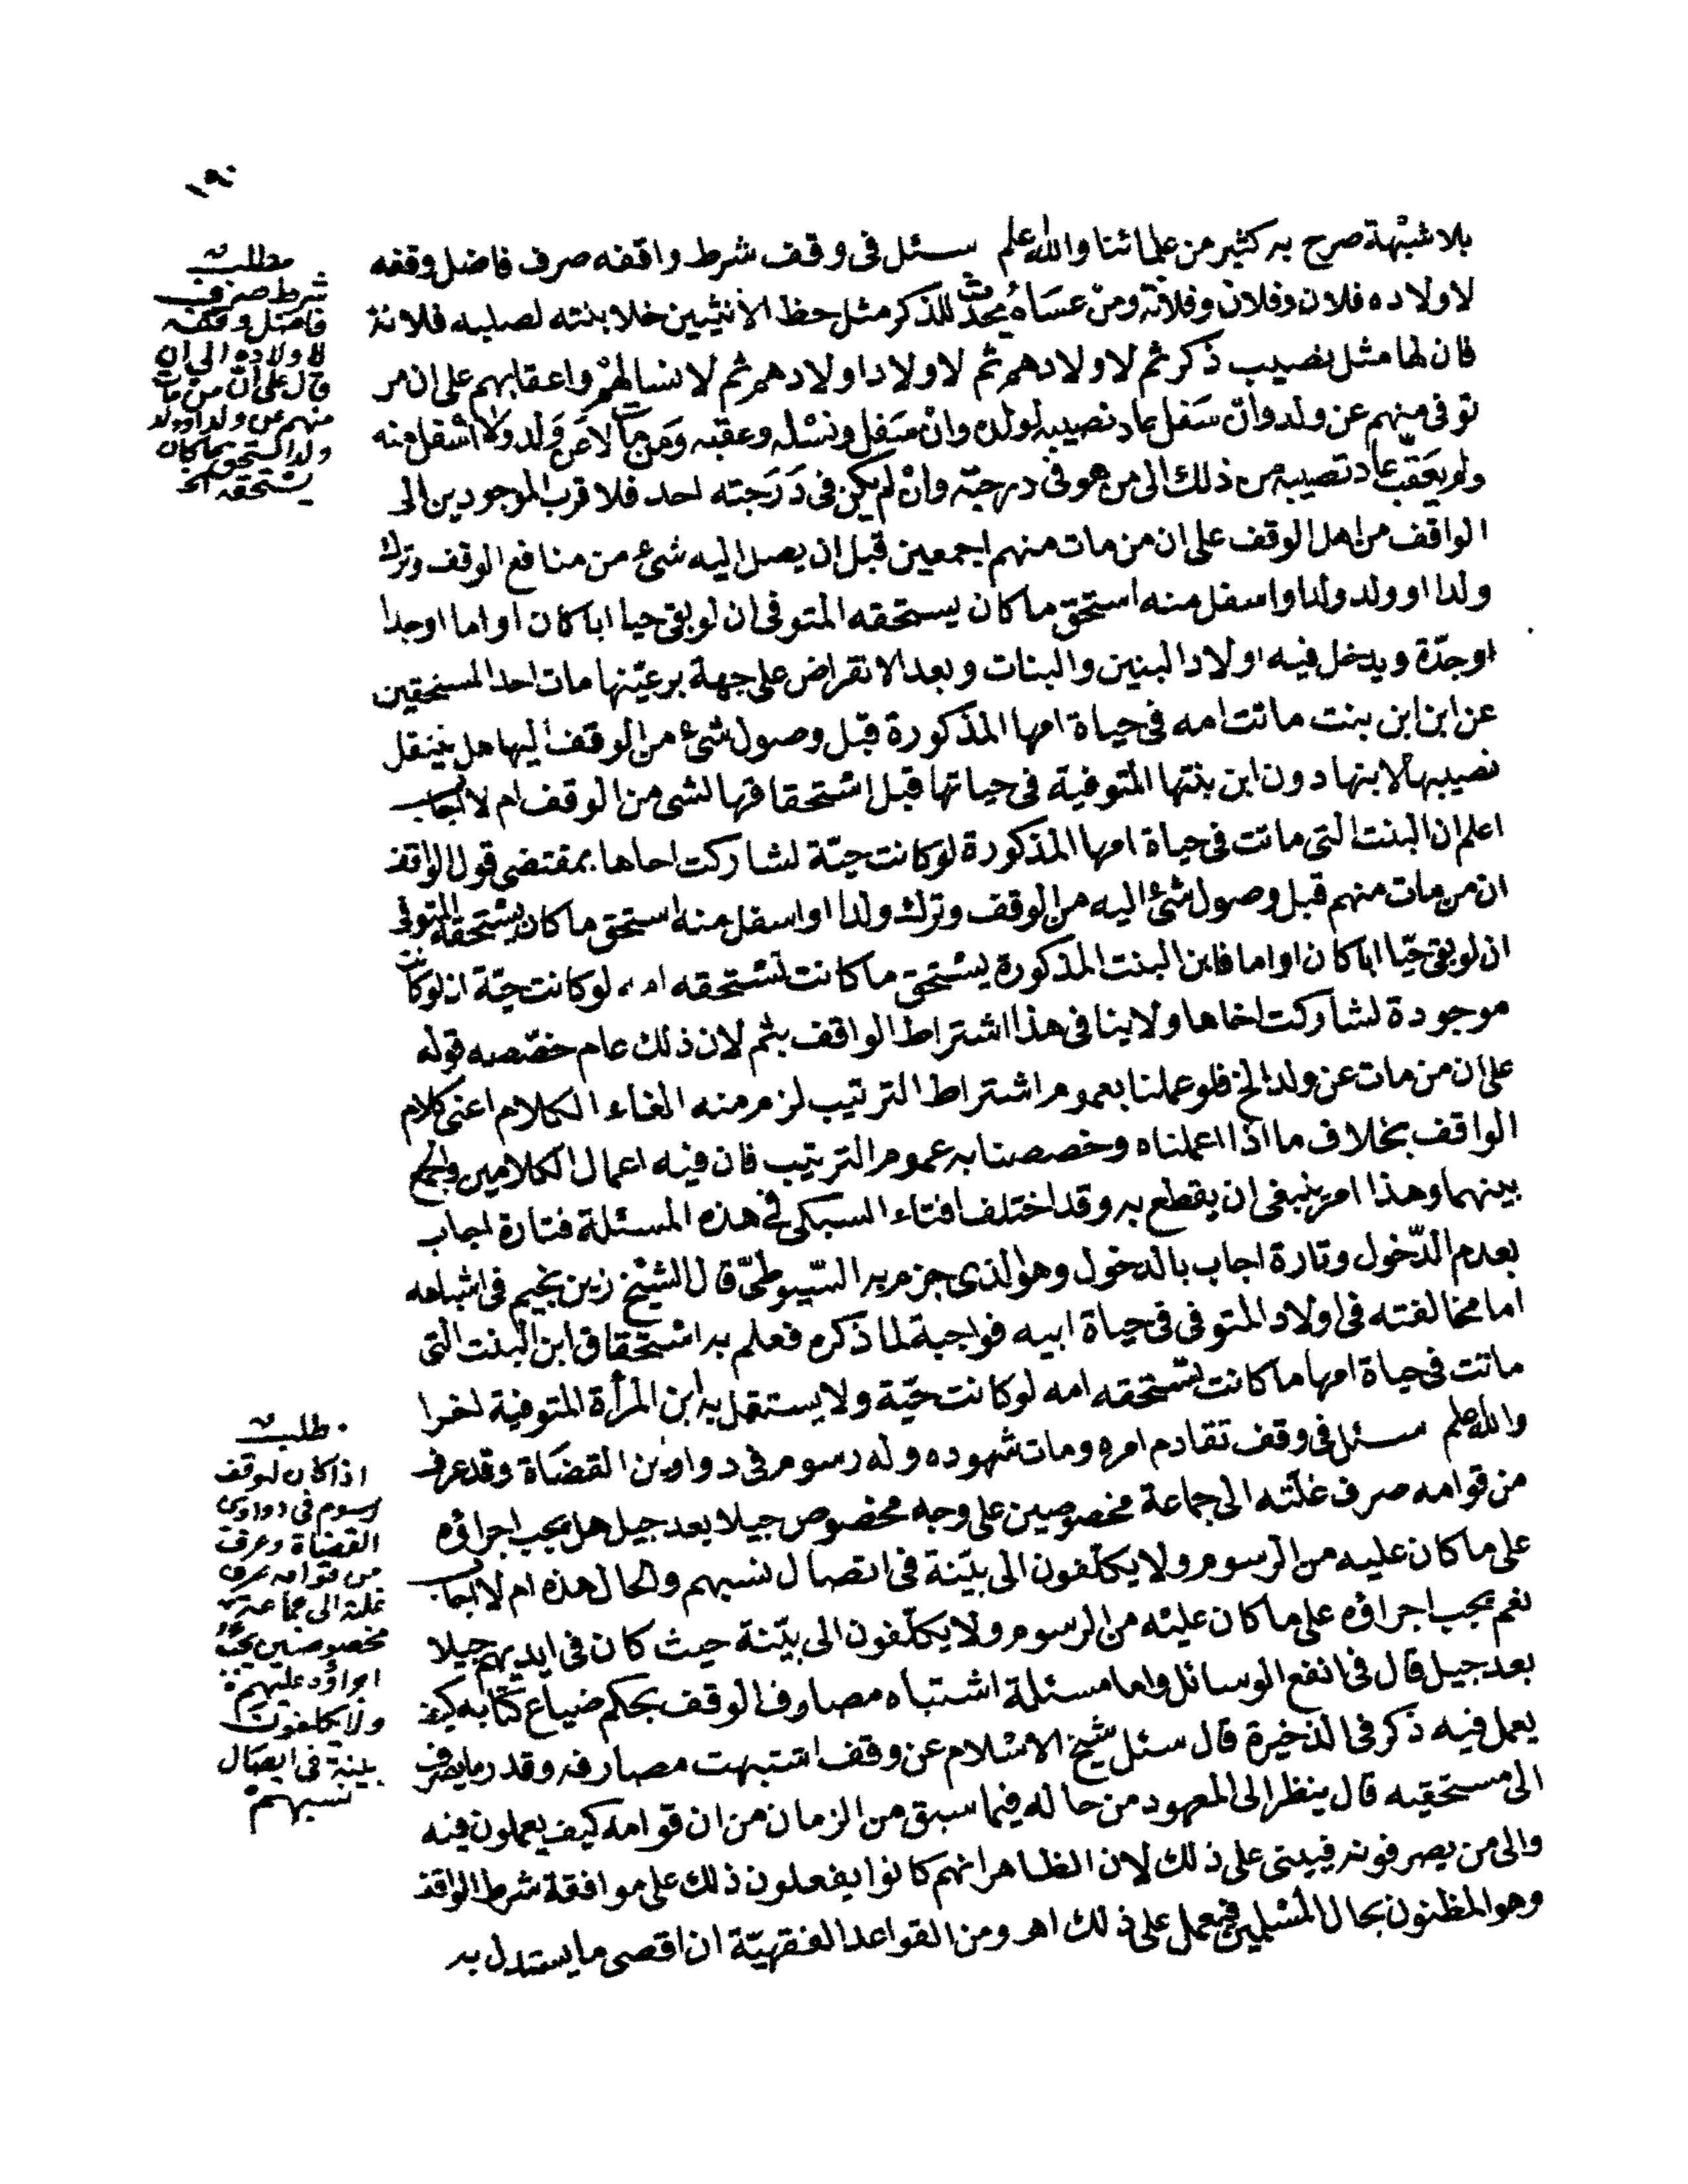 ١٩٠
بلا شبهة صرح به كثير من علمائنا والله اعلم سئل فى وقف شرط واقفه صرف فاضل وقفه
لاولاده فلان وفلان وفلانة ومن عساه يحدث للذكر مثل حظ الانثيين خلا بنته لصلبه فلانة
فان لها مثل نصيب ذكر ثم لاولادهم ثم لاولاد اولادهم ثم لانسالهم واعقابهم على ان من
توفى منهم عن ولد وان سفل عاد نصيبه لولده وان سفل ونسله وعقبه ومن مات لا عن ولد ولا اسفل منه
ولم يعقب عاد نصيبه من ذلك الى من هو فى درجته وان لم يكن فى درجته احد فلاقرب الموجودين الى
الواقف من اهل الوقف على ان من مات منهم اجمعين قبل ان يصل اليه شئ من منافع الوقف وترك
ولدا او ولد ولد او اسفل منه استحق ما كان يستحقه المتوفى ان لو بقى حيا ابا كان او اما او جدا
او جدّة ويدخل فيه اولاد البنين والبنات وبعد الانقراض على جهة بر عيّنها مات احد المستحقين
عن ابن ابن بنت ماتت امه فى حياة امها المذكورة قبل وصول شئ من الوقف اليها هل ينتقل
نصيبها لابنها دون ابن بنتها المتوفية فى حياتها قبل استحقاقها لشى من الوقف ام لا اجاب
اعلم ان البنت التى ماتت فى حياة امها المذكورة لو كانت حيّة لشاركت اخاها بمقتضى قول الواقف
ان من مات منهم قبل وصول شئ اليه من الوقف وترك ولدا او اسفل منه استحق ما كان يستحقه المتوفى
ان لو بقى حيّا ابا كان او اما فابن البنت المذكورة يستحق ما كانت تستحقه امه لو كانت حيّة اذ لو كانت
موجودة لشاركت اخاها ولا ينافى هذا اشتراط الواقف بثم لان ذلك عام خصّصه قوله
على ان من مات عن ولد الخ فلو عملنا بعموم اشتراط الترتيب لزم منه الغاء الكلام اعنى كلام
الواقف بخلاف ما اذا اعملناه وخصصنا به عموم الترتيب فان فيه اعمال الكلامين والجمع
بينهما وهذا امر ينبغى ان يقطع به وقد اختلف افتاء السبكى فى هذه المسئلة فتارة اجاب
بعدم الدّخول وتارة اجاب بالدخول وهو الذى جزم به السّيوطىّ قال الشيخ زين نجيم فى اشباهه
اما مخالفته فى اولاد المتوفى فى حياة ابيه فواجبة لما ذكره فعلم به استحقاق ابن البنت التى
ماتت فى حياة امها ما كانت تستحقه امه لو كانت حيّة ولا يستقل به ابن المرأة المتوفية اخرا
والله اعلم سئل فى وقف تقادم امره ومات شهوده وله رسوم فى دواوين القضاة وقد عرف
من قوامه صرف غلّته الى جماعة مخصوصين على وجه مخصوص جيلا بعد جيل هل يجب اجراؤه
على ما كان عليه من الرسوم ولا يكلّفون الى بيّنة فى اتصال نسبهم والحال هذه ام لا اجاب
نعم يجب اجراؤه على ما كان عليه من الرسوم ولا يكلّفون الى بيّنة حيث كان فى ايديهم جيلا
بعد جيل قال فى انفع الوسائل واما مسئلة اشتباه مصارف الوقف بحكم ضياع كتابه كيف
يعمل فيه ذكر فى الذخيرة قال سئل شيخ الاسلام عن وقف اشتبهت مصارفه وقدر ما يصرف
الى مستحقيه قال ينظر الى المعهود من حاله فيما سبق من الزمان من ان قوامه كيف يعملون فيه
والى من يصرفونه فيبنى على ذلك لان الظاهر انهم كانوا يفعلون ذلك على موافقة شرط الواقف
وهو المظنون بحال المسلمين فيعمل على ذلك اهـ ومن القواعد الفقهيّة ان اقصى ما يستدل به
مطلب
شرط صرف
فاضل وقفه
لاولاده الى ان
قال على ان من مات
منهم عن ولد او ولد
ولد استحق ما كان
يستحقه الخ
مطلب
اذا كان لوقف
رسوم فى دواوين
القضاة وعرف
من قوامه صرف
غلته الى جماعة
مخصوصين يجب
اجراؤه عليهم
ولا يكلفون
بينة فى ايصال
نسبهم